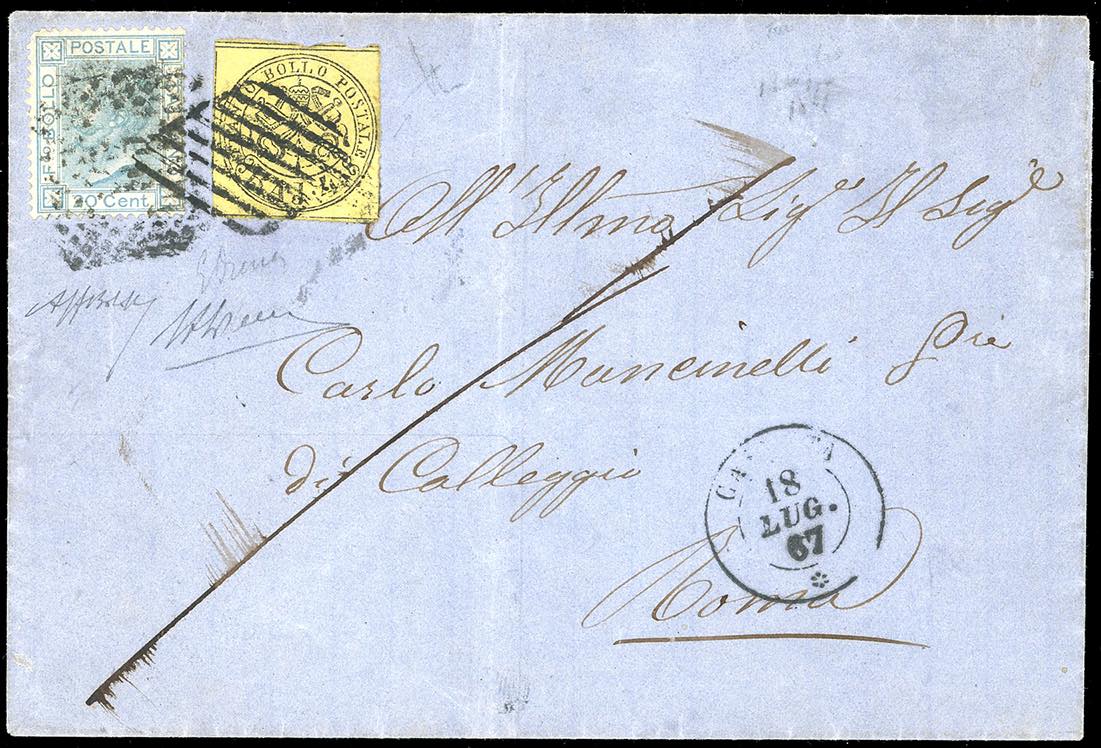 POSTALE
Fco BOLLO
20 Cent.
BOLLO POSTALE
BAJ
All'Illmo Sigr Il Sigr
Carlo Mancinelli
di Calleggio
Roma
18
LUG.
67